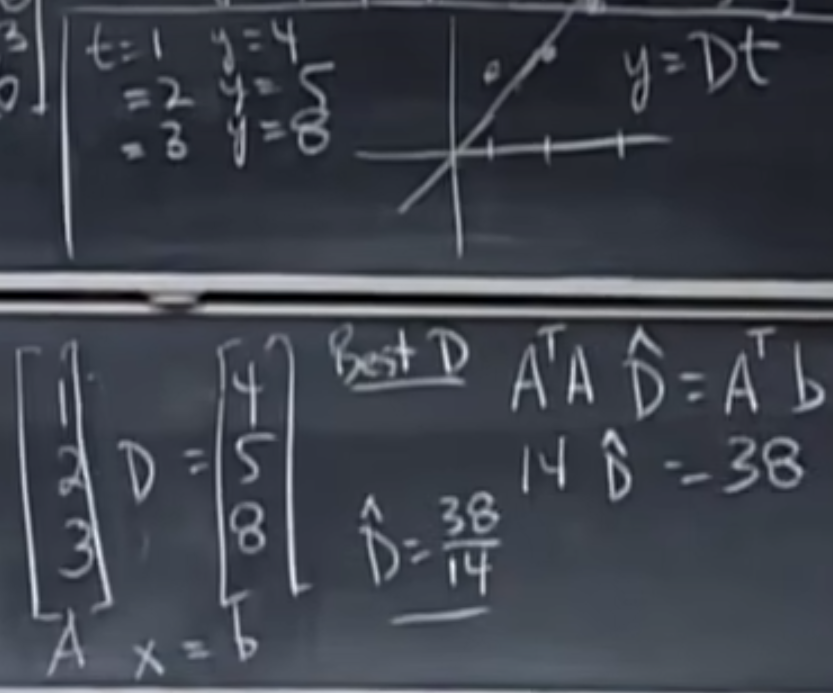 3
0
t=1 y=4
=2 y=5
=3 y=8
y=Dt
[1 2 3] D = [4 5 8]
A x = b
Best D
AᵀA D̂ = Aᵀb
14 D̂ = 38
D̂ = 38/14